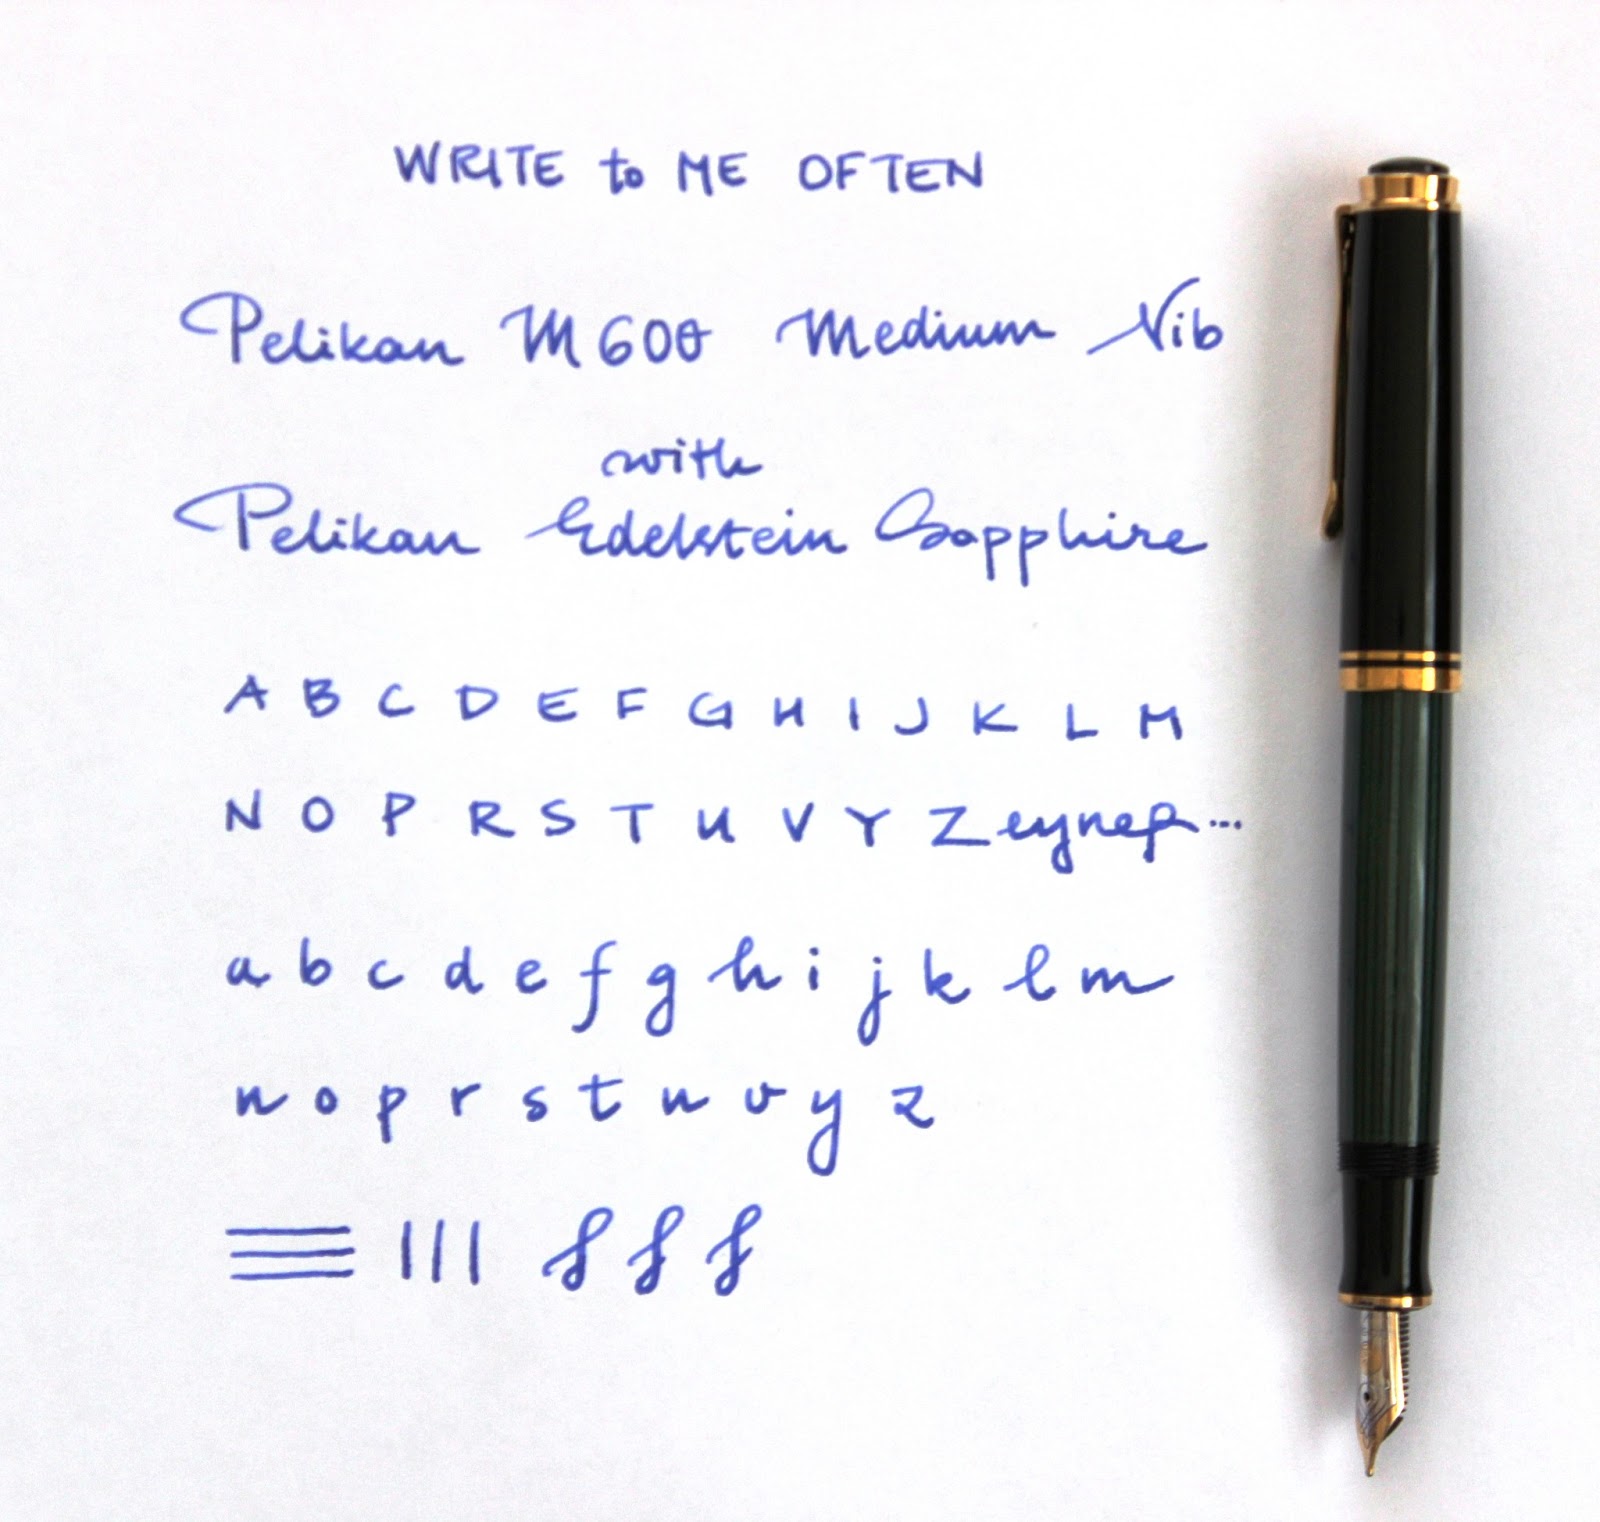 WRITE to ME OFTEN
Pelikan M600 Medium Nib
with
Pelikan Edelstein Sapphire
A B C D E F G H I J K L M
N O P R S T U V Y Zeynep...
a b c d e f g h i j k l m
n o p r s t u v y z